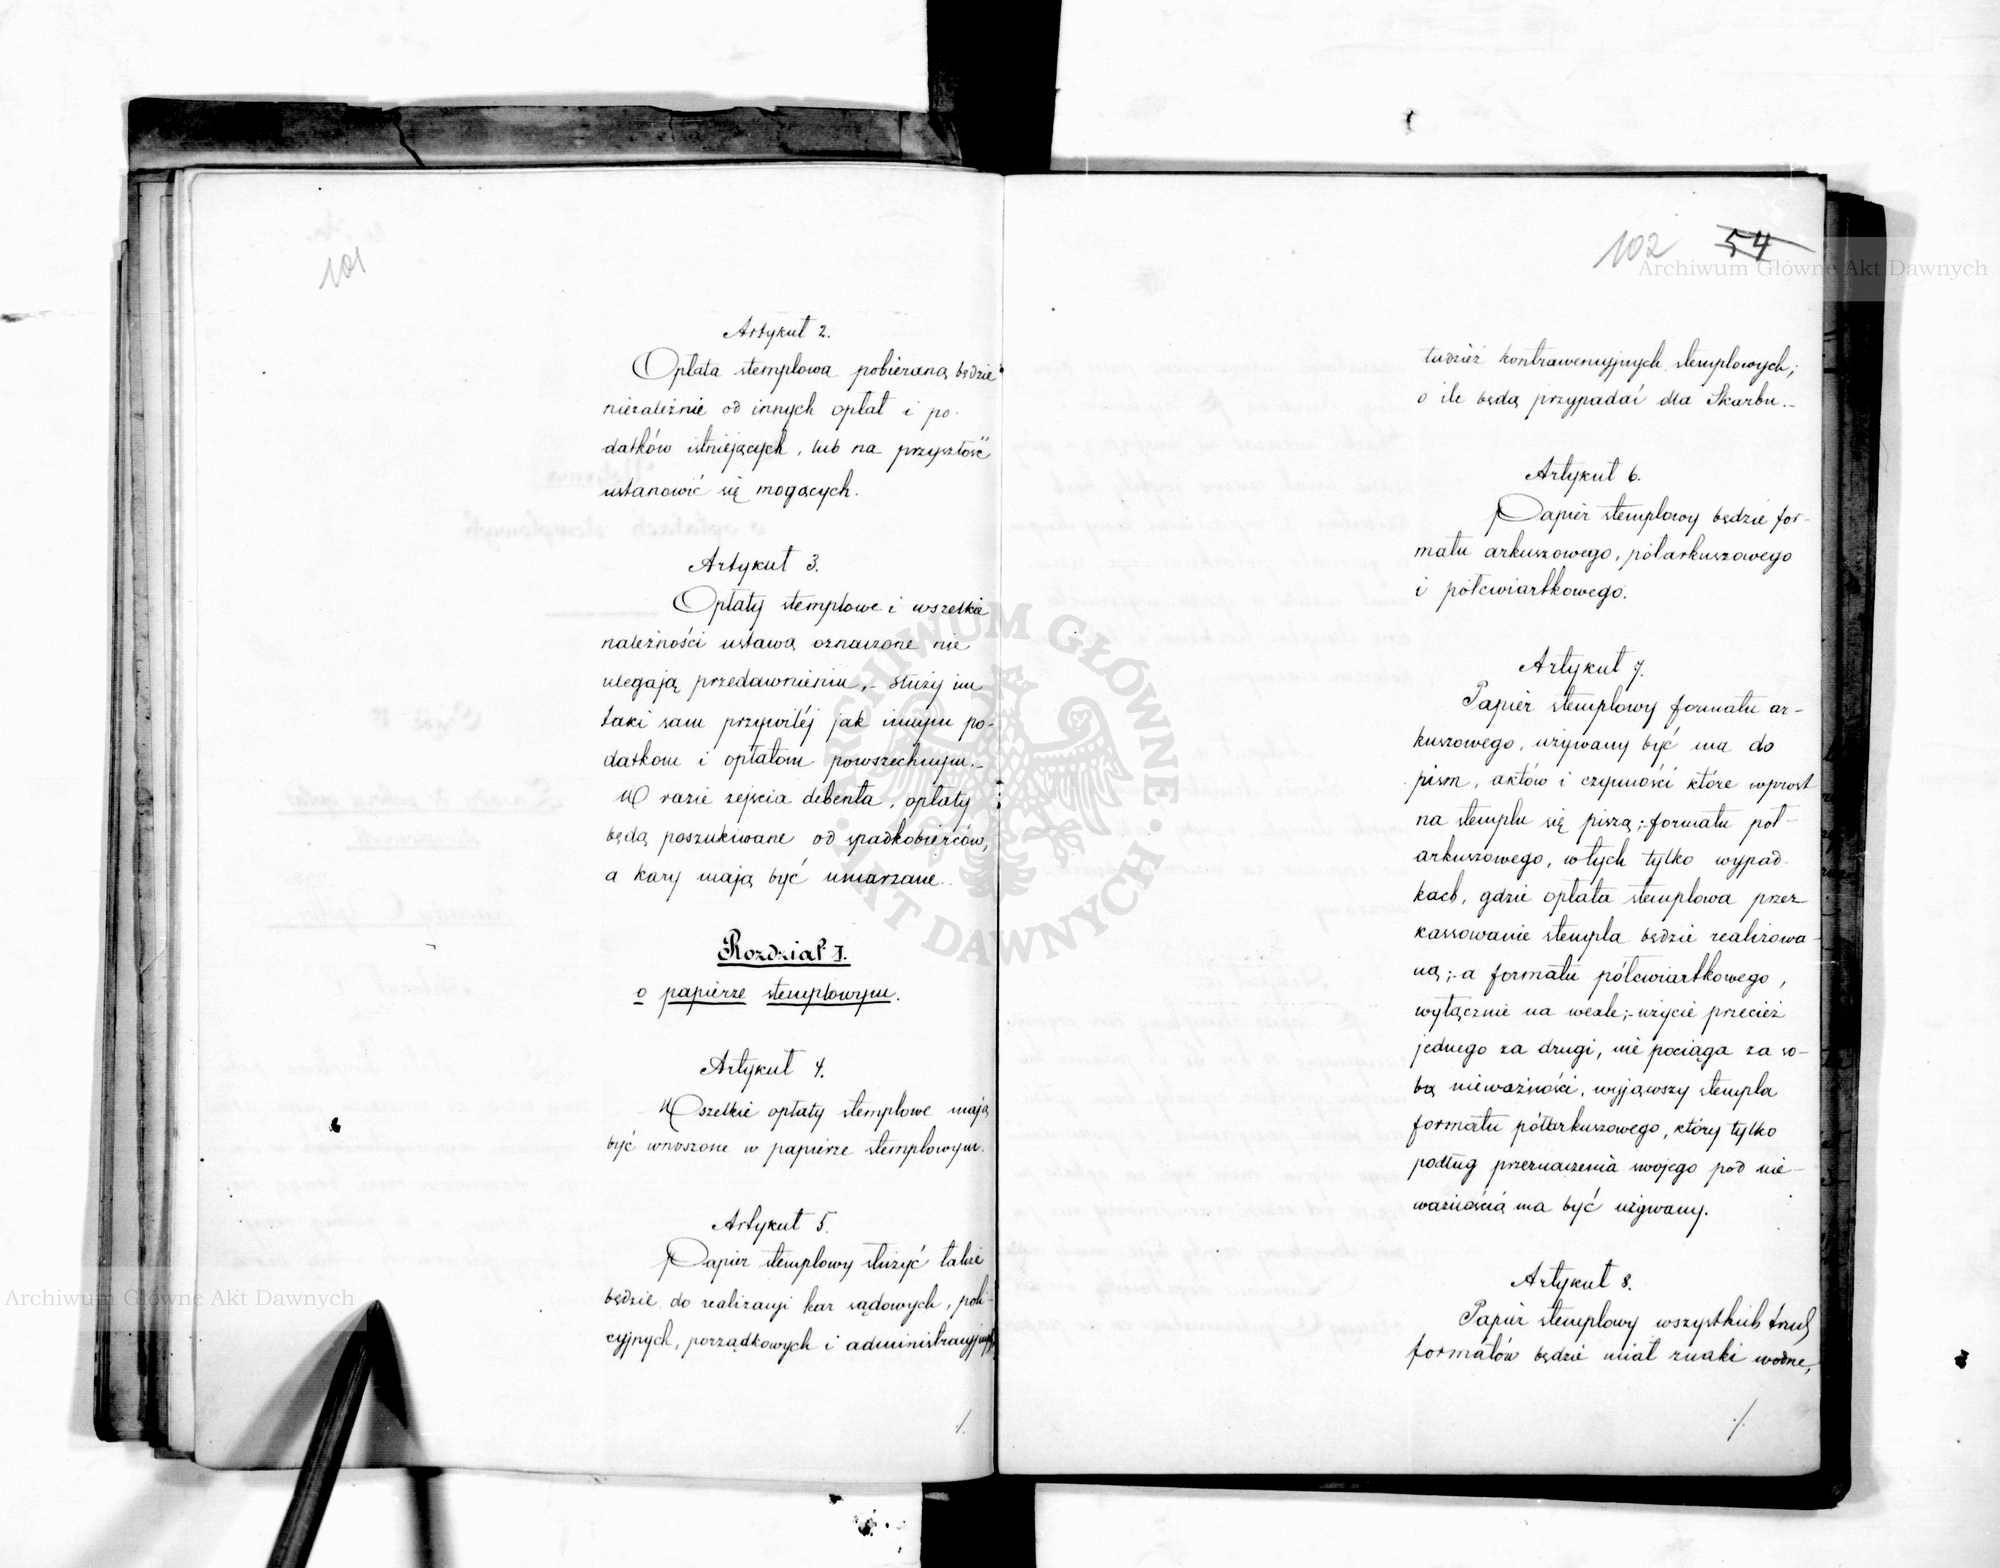 101
Artykuł 2.
Opłata stemplowa pobieraną będzie
niezależnie od innych opłat i po-
datków istniejących, lub na przyszłość
ustanowić się mogących.
Artykuł 3.
Opłaty stemplowe i wszelkie
należności ustawą oznaczone nie
ulegają przedawnieniu,- służy im
taki sam przywiléj jak innym po-
datkom i opłatom powszechnym.-
W razie zejścia debenta, opłaty
będą poszukiwane od spadkobierców,
a kary mają być umarzane.-
Rozdział I.
o papierze stemplowym.
Artykuł 4.
Wszelkie opłaty stemplowe mają
być wnoszone w papierze stemplowym.
Artykuł 5.
Papier stemplowy służyć także
będzie do realizacyi kar sądowych, poli-
cyjnych, porządkowych i administracyjnych
/.
102 54
tudzież kontrawencyjnych stemplowych;
o ile będą przypadać dla Skarbu.-
Artykuł 6.
Papier stemplowy będzie for-
matu arkuszowego, półarkuszowego
i półćwiartkowego.
Artykuł 7.
Papier stemplowy formatu ar-
kuszowego, używany być ma do
pism, aktów i czynności które wprost
na stemplu się piszą;- formatu pół-
arkuszowego, w tych tylko wypad-
kach, gdzie opłata stemplowa przez
kassowanie stempla będzie realizowa-
ną;- a formatu półćwiartkowego,
wyłącznie na wexle;- użycie przecież
jednego za drugi, nie pociąga za so-
bą nieważności, wyjąwszy stempla
formatu półarkuszowego, który tylko
podług przeznaczenia swojego pod nie-
ważnością ma być używany.
Artykuł 8.
Papier stemplowy wszystkich trzech
formatów będzie miał znaki wodne,
/.
Archiwum Główne Akt Dawnych
Archiwum Główne Akt Dawnych
ARCHIWUM GŁÓWNE
AKT DAWNYCH